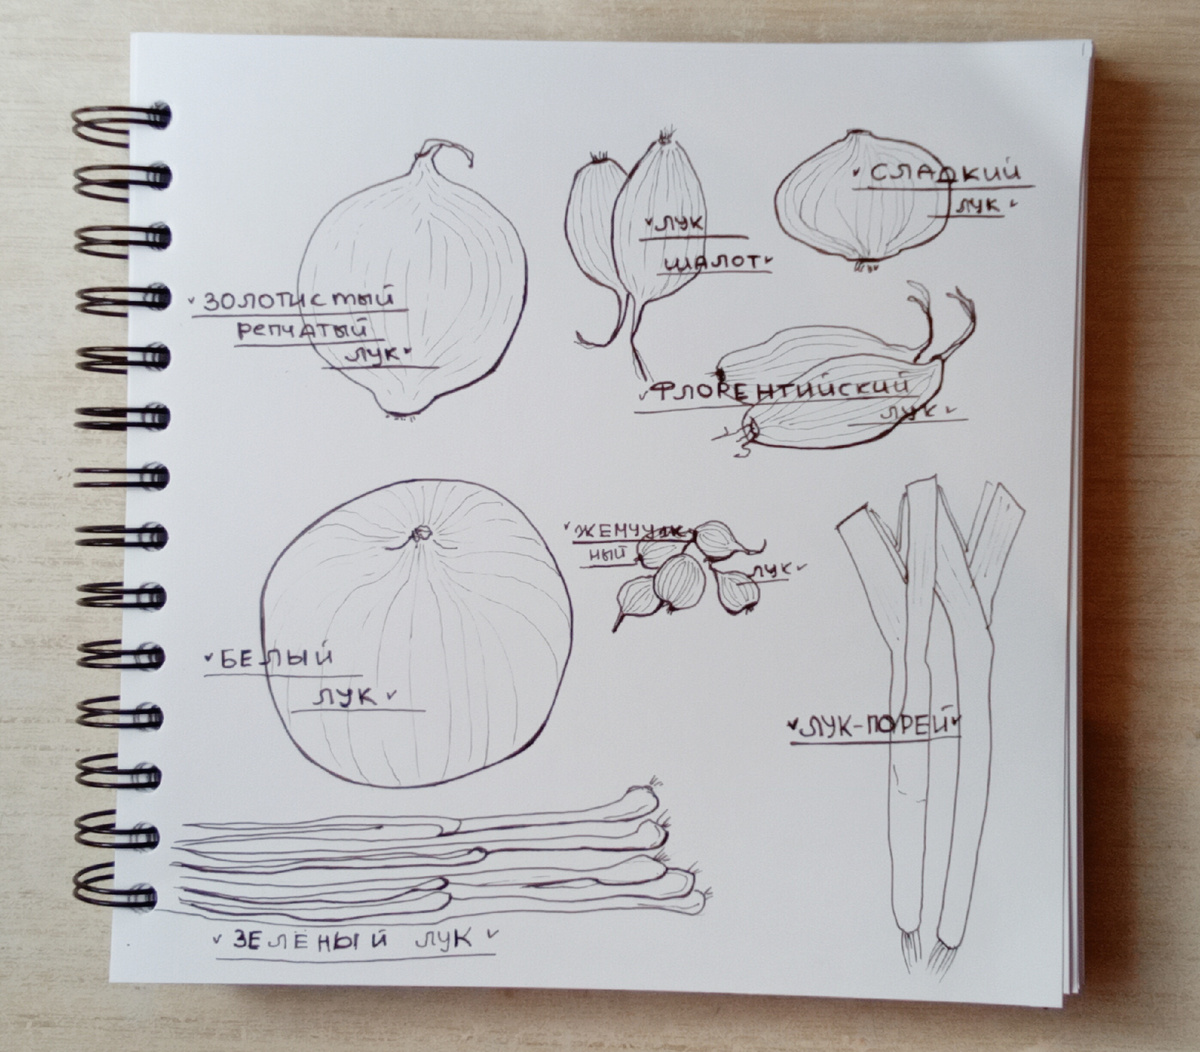 ЗОЛОТИСТЫЙ
РЕПЧАТЫЙ
ЛУК
ЛУК
ШАЛОТ
СЛАДКИЙ
ЛУК
ФЛОРЕНТИЙСКИЙ
ЛУК
БЕЛЫЙ
ЛУК
ЖЕМЧУЖ
НЫЙ
ЛУК
ЛУК-ПОРЕЙ
ЗЕЛЁНЫЙ ЛУК